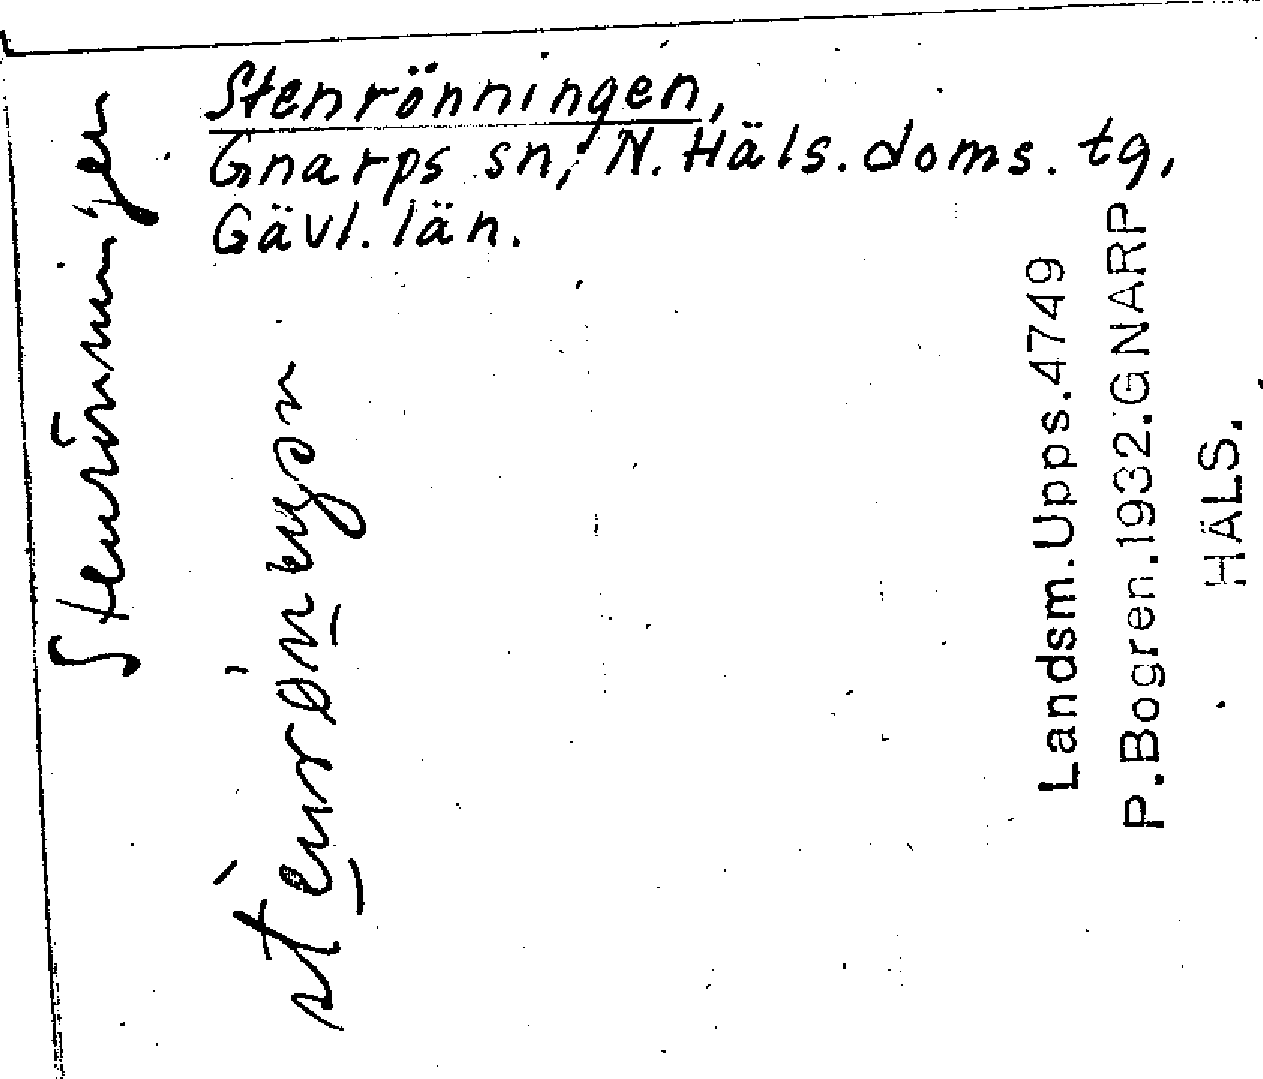 Stenrönningen,
Gnarps sn, N. Häls. doms. tg,
Gävl. län.
Stenrönningen
Landsm. Upps. 4749
P. Bogren. 1932. GNARP.
HÄLS.